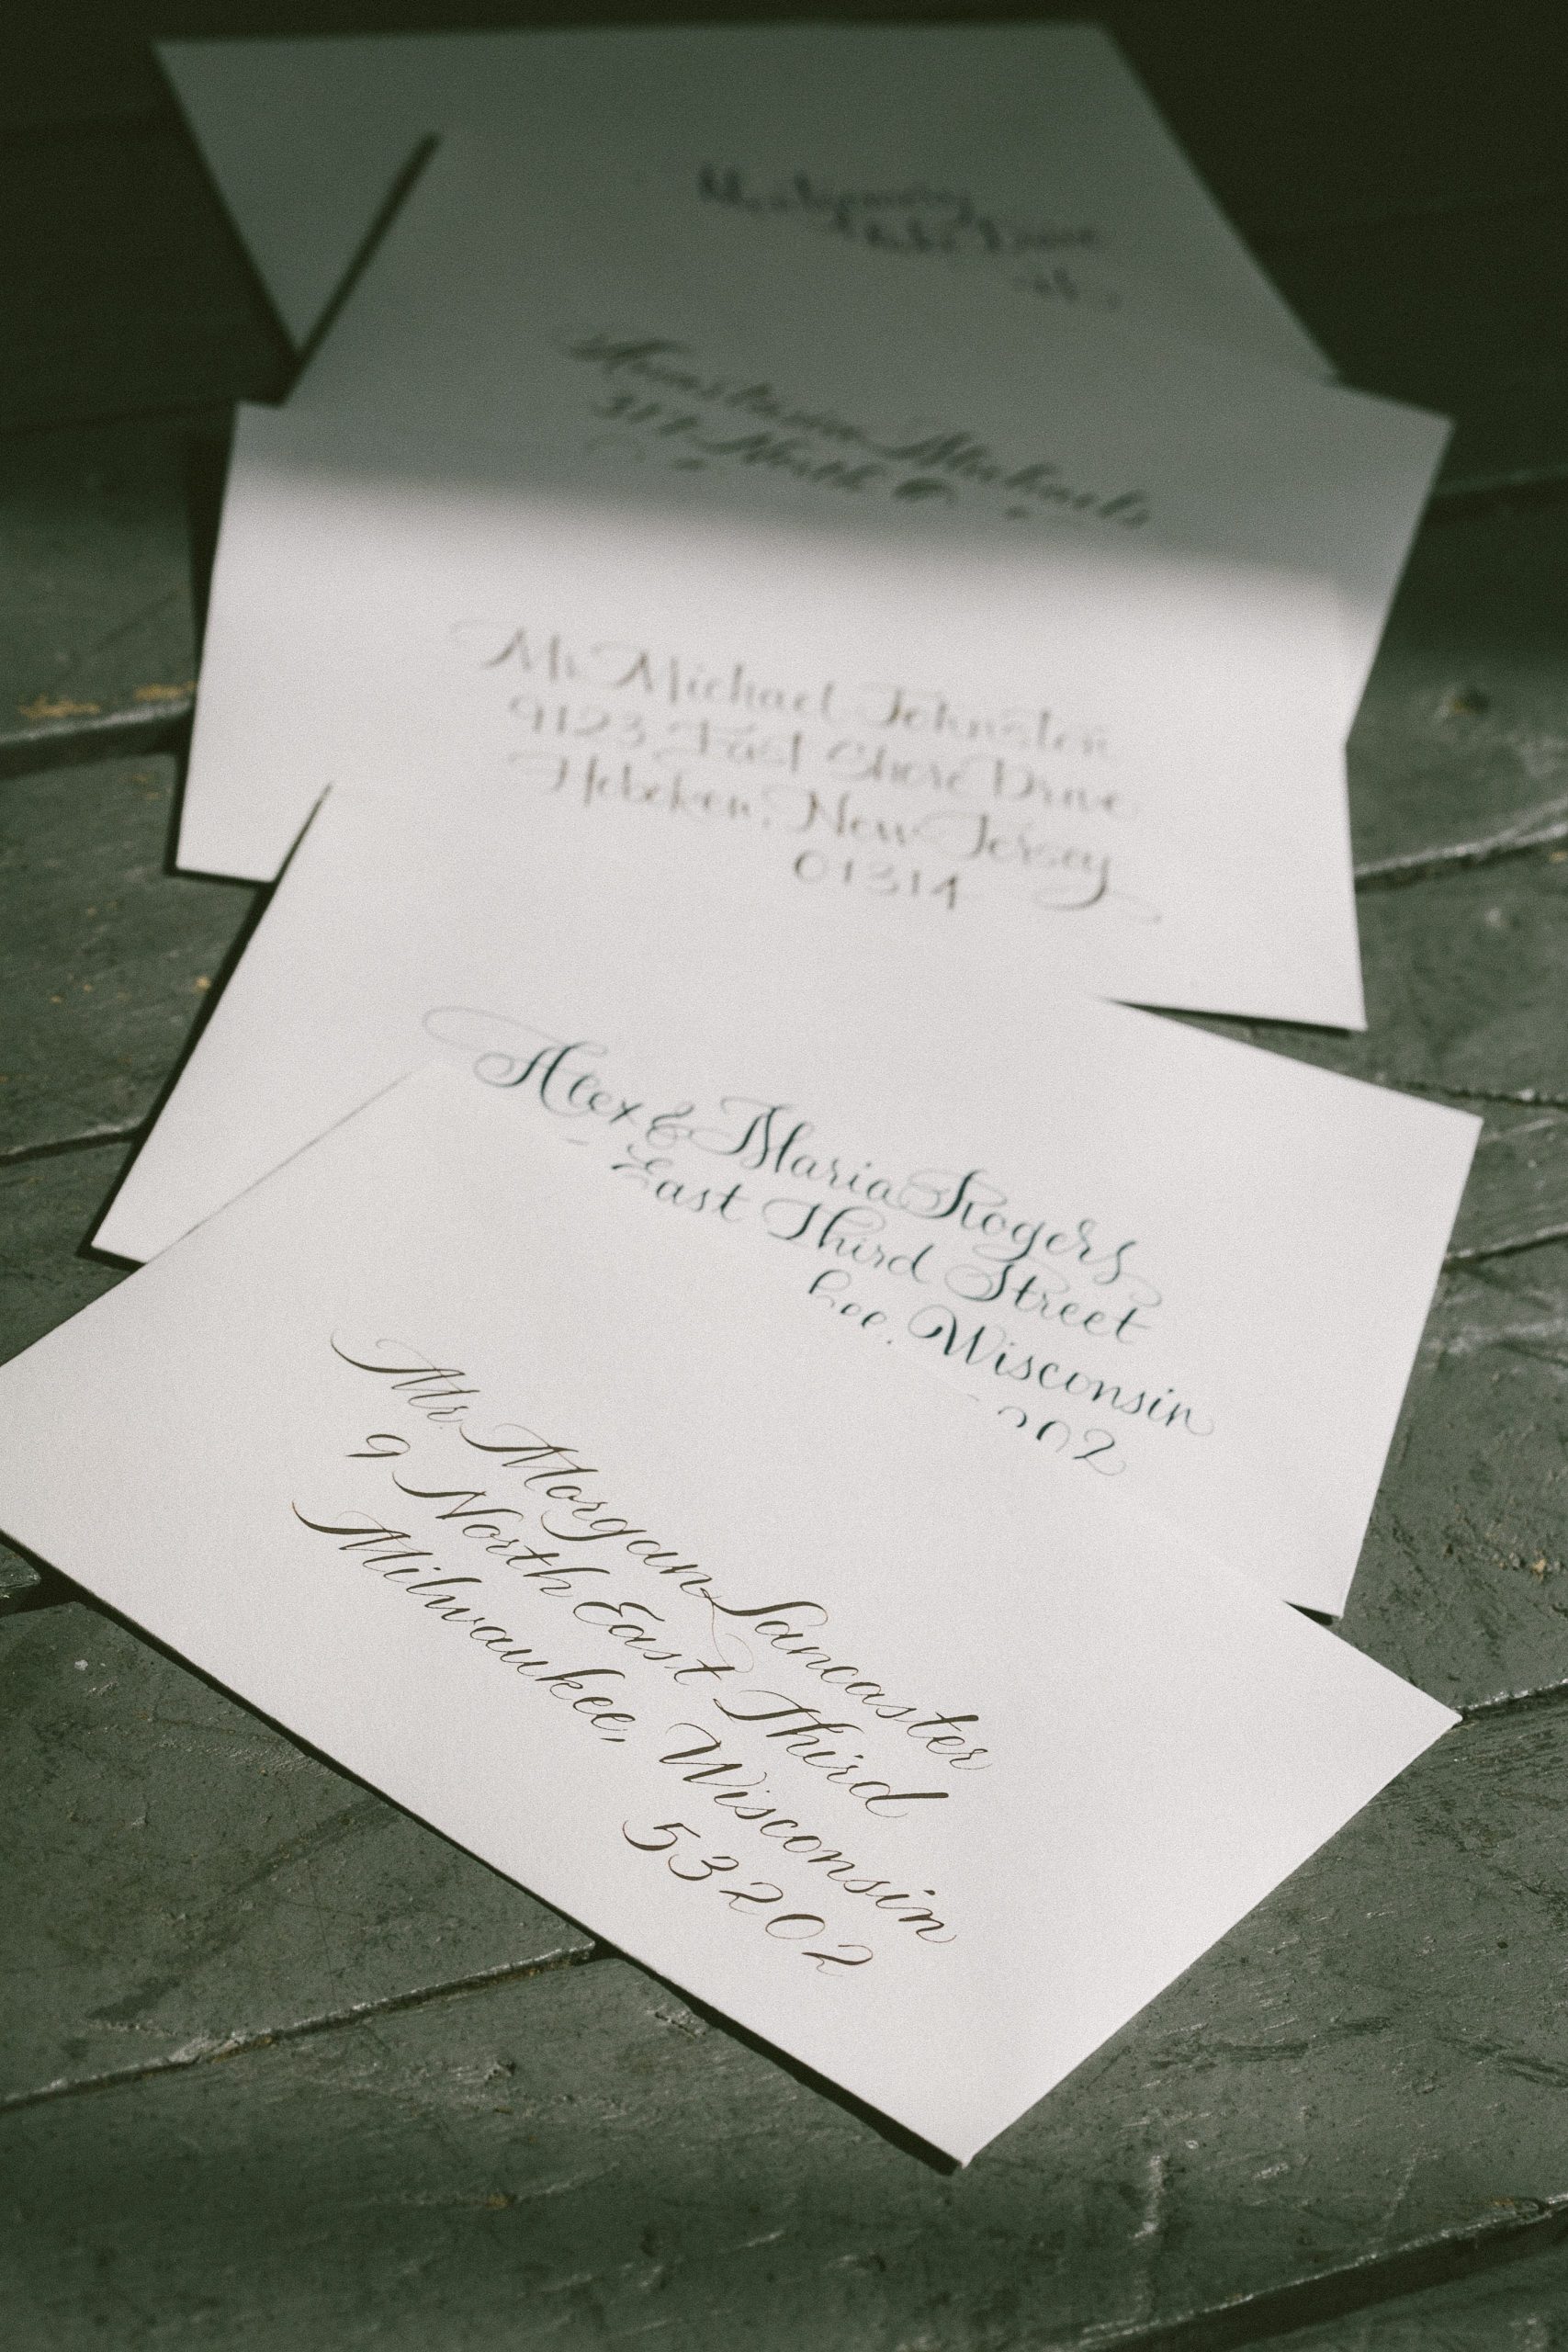 Drive
Anastasia Michaels
317 North
Mr. Michael Johnston
9123 East Shore Drive
Hoboken, New Jersey
01314
Alex & Maria Rogers
East Third Street
kee, Wisconsin
202
Mr. Morgan Lancaster
9 North East Third
Milwaukee, Wisconsin
53202